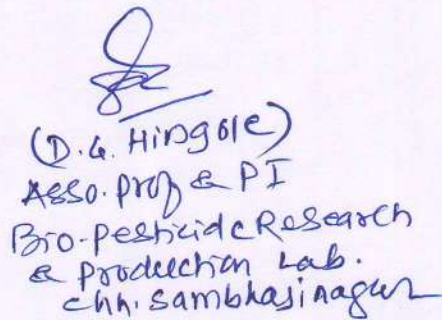 (D.G. Hingole)
Asso. Prof & PI
Bio-Pesticide Research
& Production Lab.
Chh. Sambhajinagar